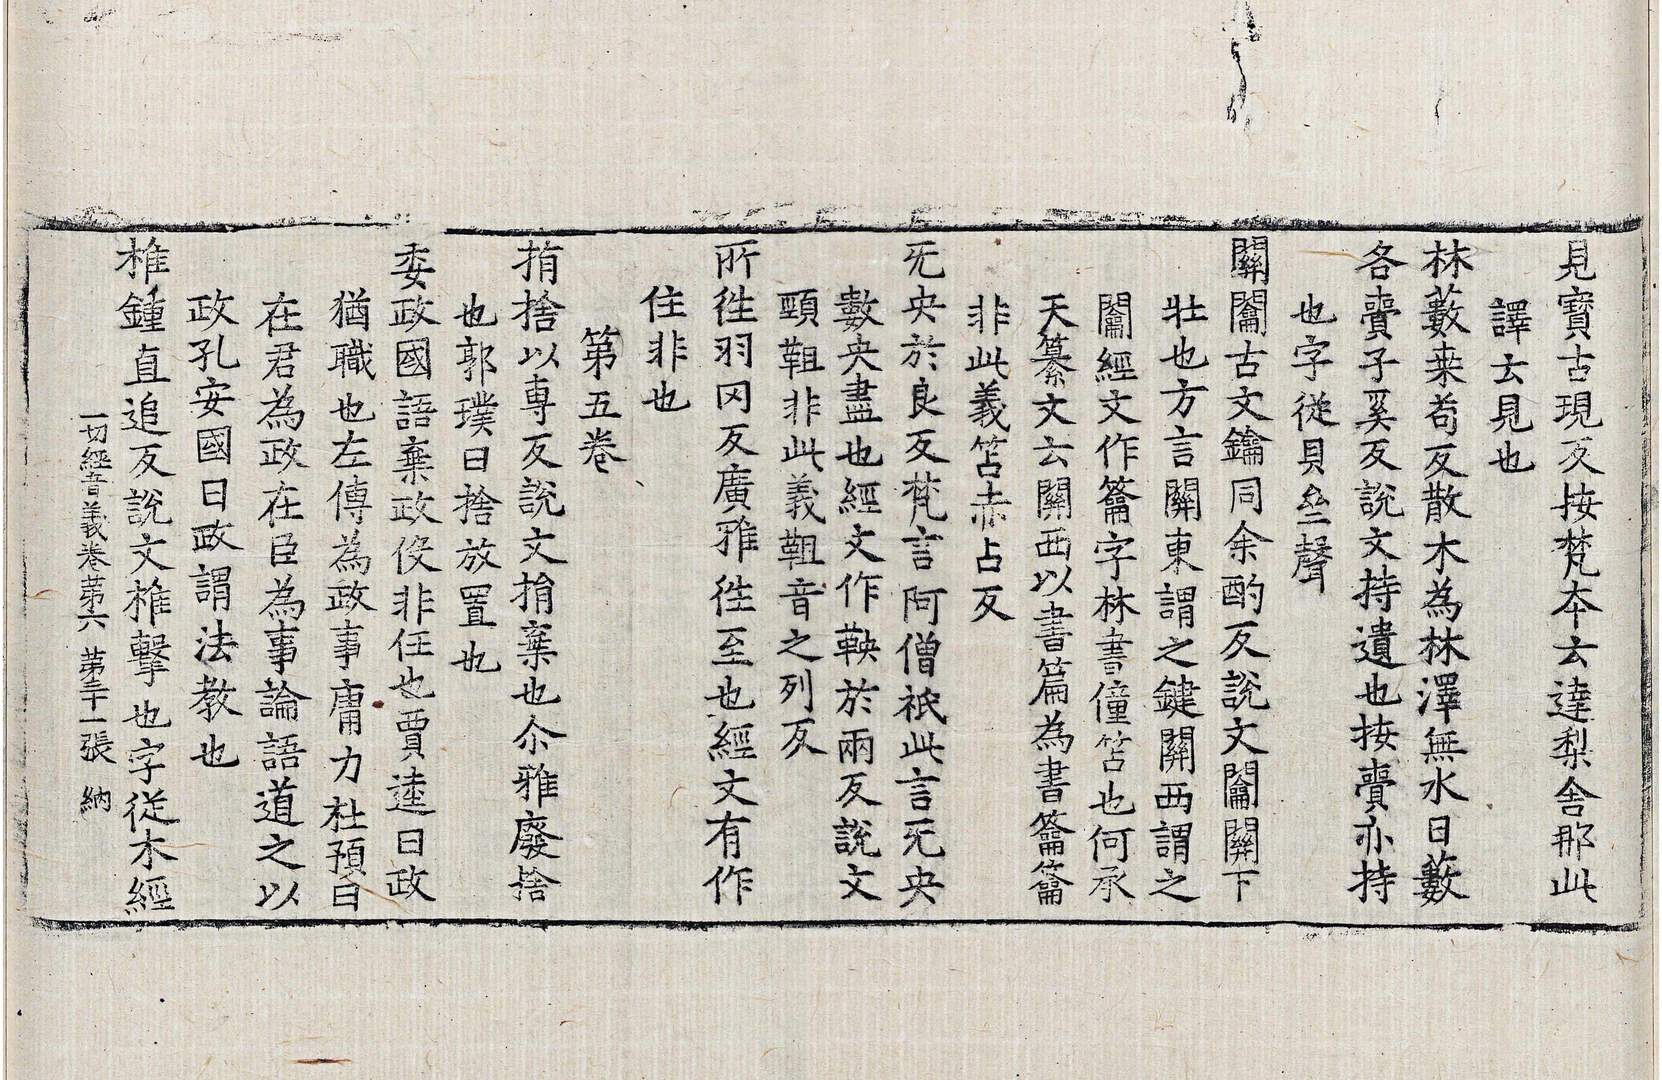 見寶古現反按梵本云達梨舍那此
譯云見也
林藪桒苟反散木為林澤無水曰藪
各賷子奚反說文持遺也按賷亦持
也字從貝亝聲
關闟古文鑰同余酌反說文闟關下
壯也方言關東謂之鍵關西謂之
闟經文作籥字林書僮笘也何承
天纂文云關西以書篇為書籥籥
非此義笘赤占反
旡央於良反梵言阿僧祇此言旡央
數央盡也經文作鞅於兩反說文
頸靼非此義靼音之列反
所徃羽罔反廣雅徃至也經文有作
住非也
第五卷
捐捨以專反說文捐棄也尒雅廢捨
也郭璞曰捨放置也
委政國語棄政役非任也賈逵曰政
猶職也左傳為政事庸力杜預曰
在君為政在臣為事論語道之以
政孔安國曰政謂法教也
椎鍾直追反說文椎擊也字從木經
一切經音義卷苐六 苐二十一張 納